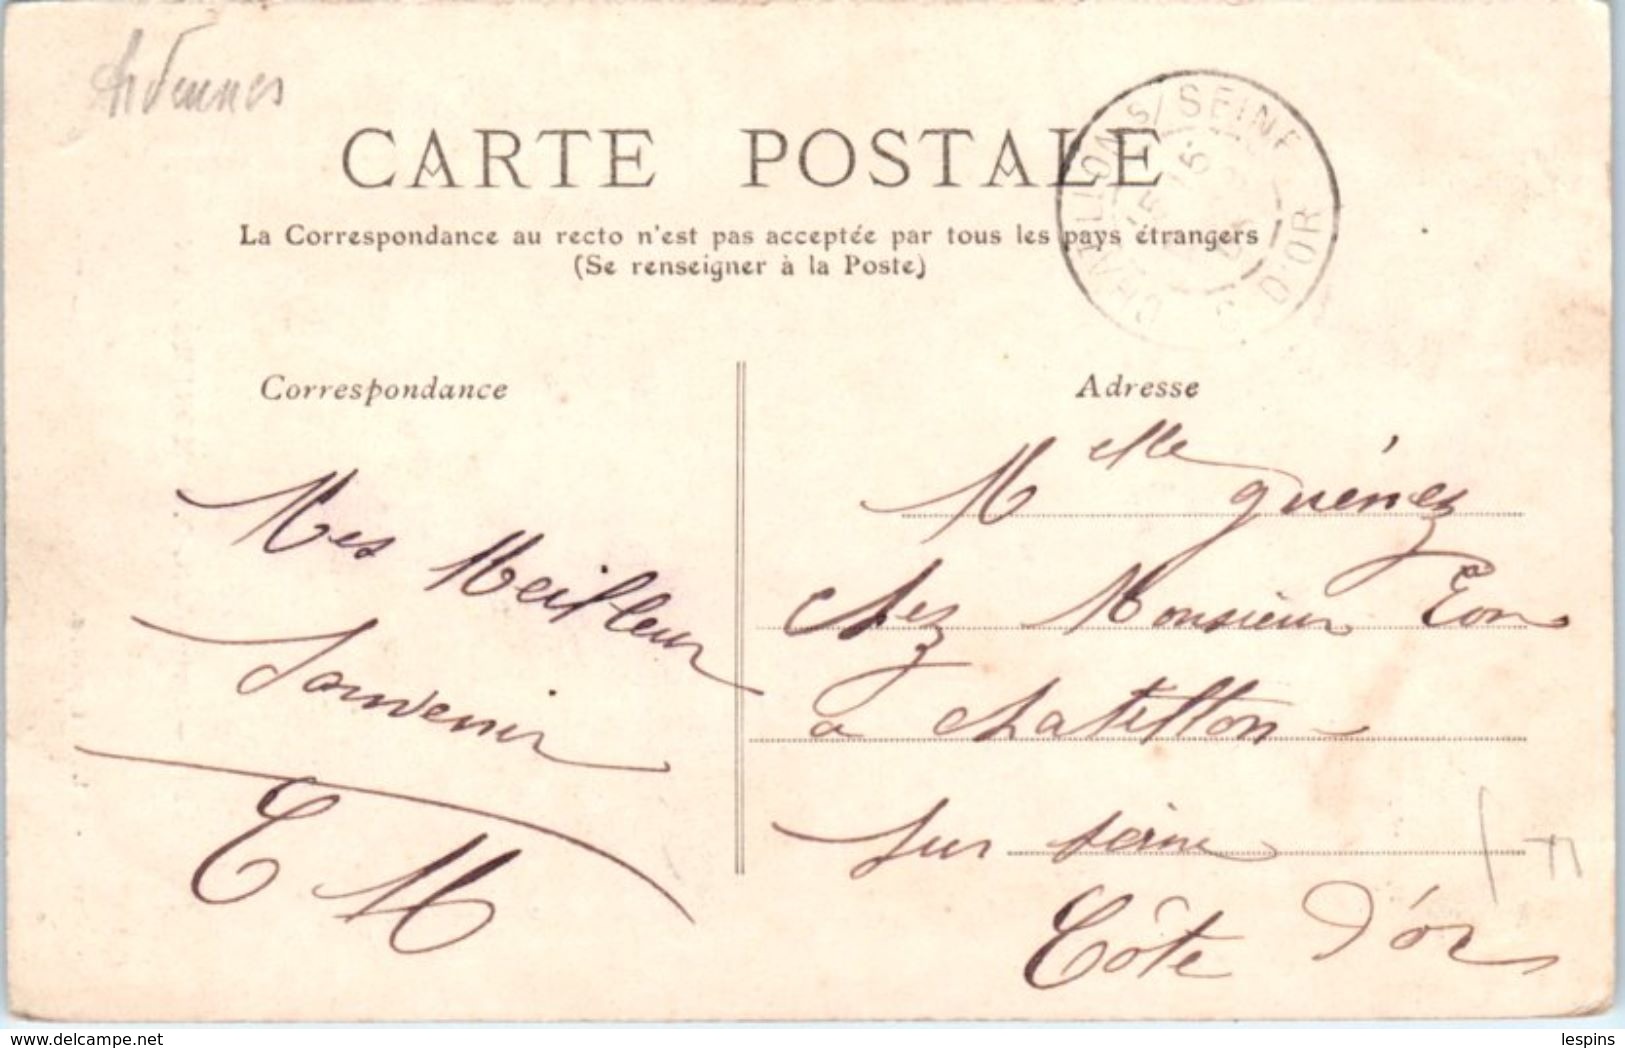 Ardennes
CARTE POSTALE
La Correspondance au recto n'est pas acceptée par tous les pays étrangers
(Se renseigner à la Poste)
CHATILLON S/ SEINE
D'OR
Correspondance
Adresse
Mes Meilleur
Souvenir
Melle Guénez
chez Monsieur Eon
a chatillon -
sur seine
Côte d'or
www.delcampe.net
lespins